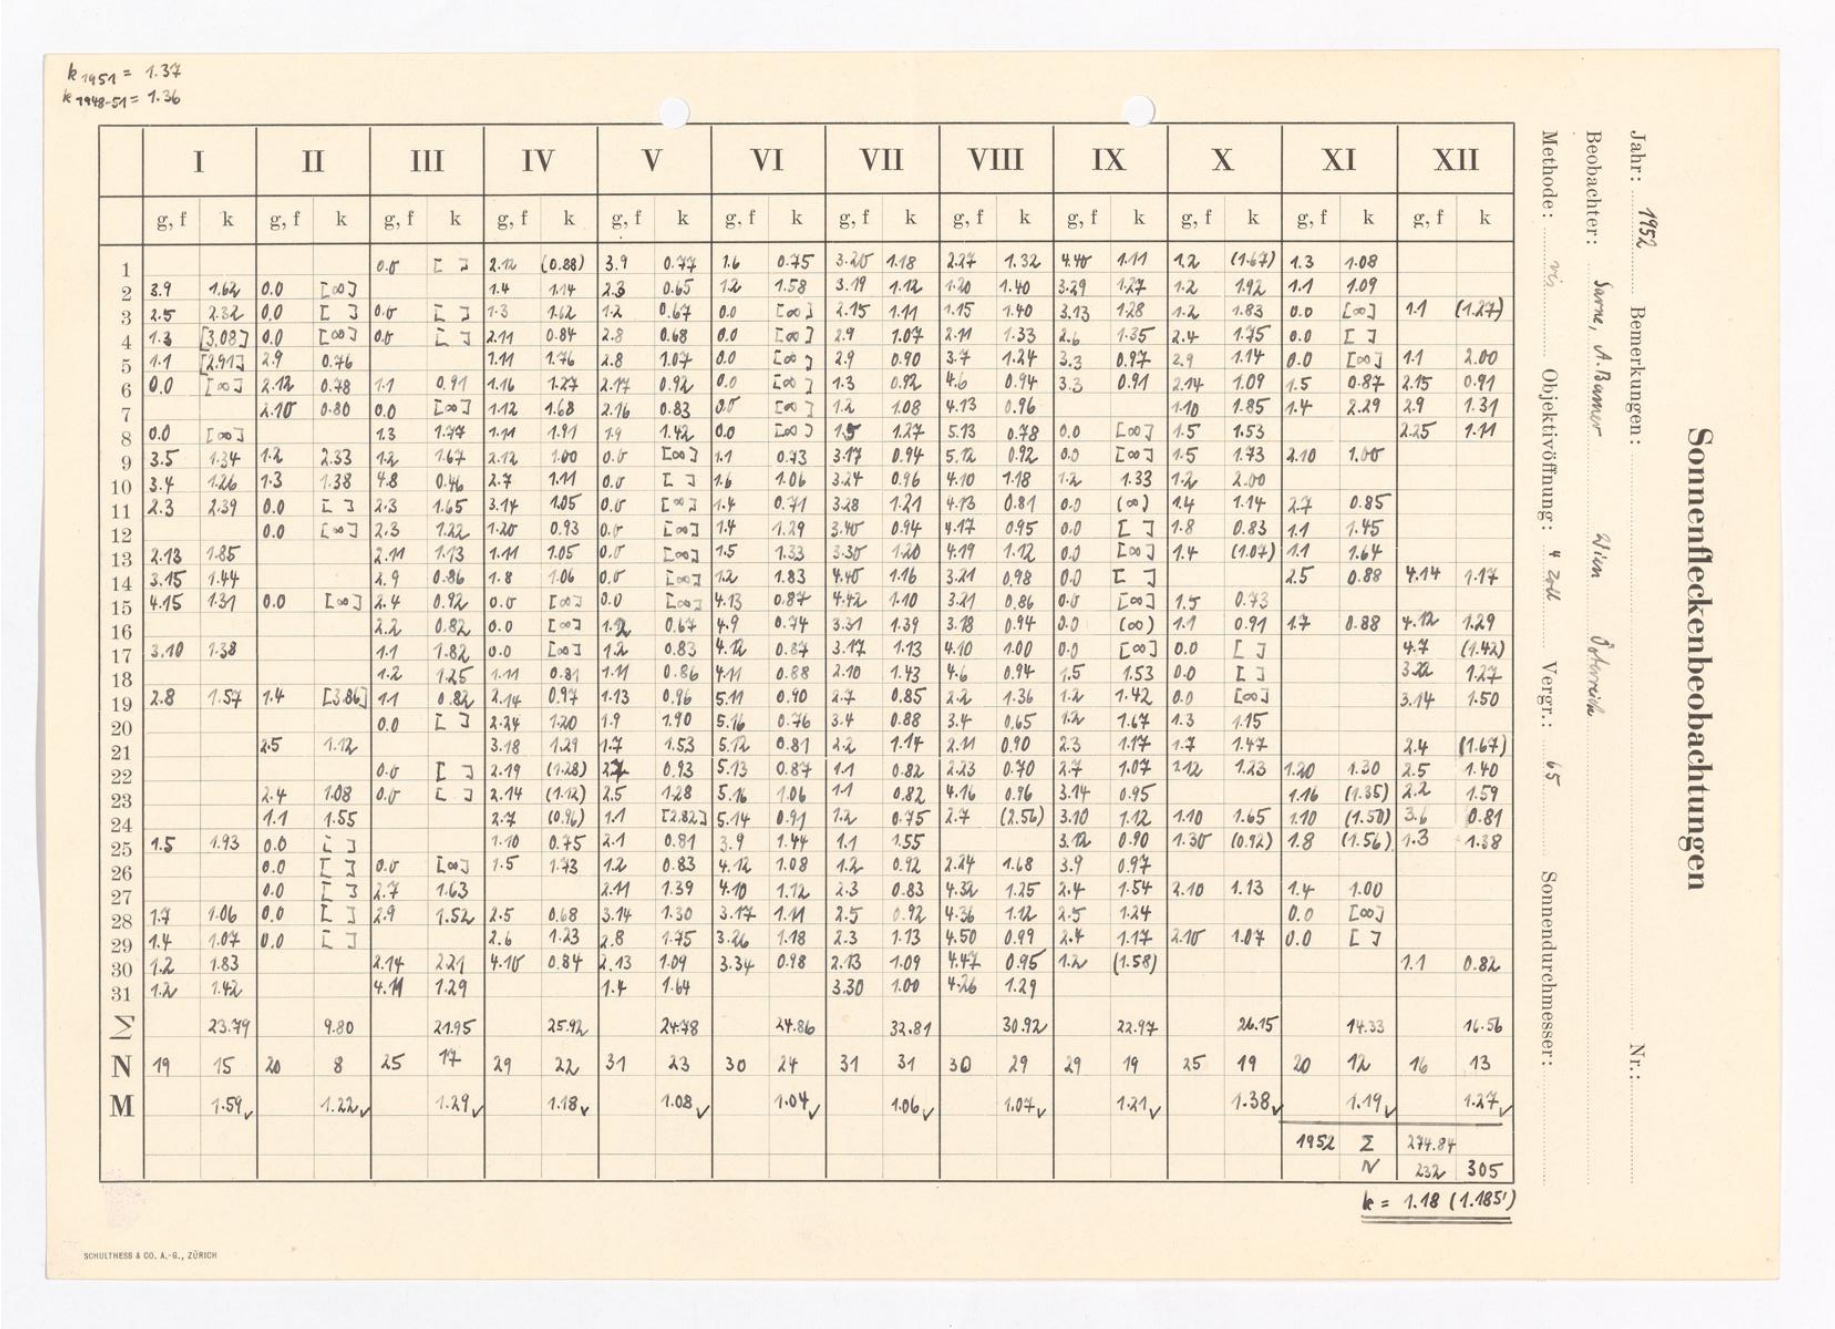 k 1951 = 1.37
k 1948-51 = 1.36
Sonnenfleckenbeobachtungen
Jahr: 1952 Bemerkungen: Nr.:
Beobachter: A. Wien Österreich
Methode: vis. Objektivöffnung: 4 Zoll Vergr.: 65 Sonnendurchmesser:
I II III IV V VI VII VIII IX X XI XII
g, f k g, f k g, f k g, f k g, f k g, f k g, f k g, f k g, f k g, f k g, f k g, f k
1 0.0 [ ] 2.12 (0.88) 3.9 0.77 1.6 0.75 3.20 1.18 2.27 1.32 4.40 1.11 1.2 (1.67) 1.3 1.08
2 3.9 1.62 0.0 [∞] 1.4 1.14 2.3 0.65 1.2 1.58 3.19 1.12 1.20 1.40 3.29 1.27 1.2 1.92 1.1 1.09
3 2.5 2.32 0.0 [ ] 0.0 [ ] 1.3 1.62 1.2 0.67 0.0 [∞] 2.15 1.11 1.15 1.40 3.13 1.28 1.2 1.83 0.0 [∞] 1.1 (1.27)
4 1.3 [3.08] 0.0 [∞] 0.0 [ ] 2.11 0.84 2.8 0.68 0.0 [∞] 2.9 1.07 2.11 1.33 2.6 1.35 2.4 1.75 0.0 [ ]
5 1.1 [2.91] 2.9 0.76 1.11 1.76 2.8 1.07 0.0 [∞] 2.9 0.90 3.7 1.24 3.3 0.97 2.9 1.14 0.0 [∞] 1.1 2.00
6 0.0 [∞] 2.12 0.78 1.1 0.91 1.16 1.27 2.17 0.92 0.0 [∞] 1.3 0.92 4.6 0.94 3.3 0.91 2.14 1.09 1.5 0.87 2.15 0.91
7 2.10 0.80 0.0 [∞] 1.12 1.68 2.16 0.83 0.0 [∞] 1.2 1.08 4.13 0.96 1.10 1.85 1.4 2.29 2.9 1.31
8 0.0 [∞] 1.3 1.77 1.11 1.91 1.9 1.42 0.0 [∞] 1.5 1.27 5.13 0.78 0.0 [∞] 1.5 1.53 2.25 1.11
9 3.5 1.34 1.2 2.33 1.2 1.67 2.12 1.00 0.0 [∞] 1.1 0.73 3.17 0.94 5.12 0.92 0.0 [∞] 1.5 1.73 2.10 1.00
10 3.4 1.26 1.3 1.38 4.8 0.46 2.7 1.11 0.0 [ ] 1.6 1.06 3.24 0.96 4.10 1.18 1.2 1.33 1.2 2.00
11 2.3 2.39 0.0 [ ] 2.3 1.65 3.14 1.05 0.0 [∞] 1.4 0.71 3.28 1.21 4.13 0.81 0.0 (∞) 1.4 1.14 2.7 0.85
12 0.0 [∞] 2.3 1.22 1.20 0.93 0.0 [∞] 1.4 1.29 3.40 0.94 4.17 0.95 0.0 [ ] 1.8 0.83 1.1 1.45
13 2.13 1.85 2.11 1.13 1.11 1.05 0.0 [∞] 1.5 1.33 3.30 1.20 4.19 1.12 0.0 [∞] 1.4 (1.07) 1.1 1.64
14 3.15 1.44 2.9 0.86 1.8 1.06 0.0 [∞] 1.2 1.83 4.40 1.16 3.21 0.98 0.0 [ ] 2.5 0.88 4.14 1.17
15 4.15 1.31 0.0 [∞] 2.4 0.92 0.0 [∞] 0.0 [∞] 4.13 0.87 4.42 1.10 3.21 0.86 0.0 [∞] 1.5 0.73
16 2.2 0.82 0.0 [∞] 1.2 0.67 4.9 0.74 3.31 1.39 3.18 0.94 0.0 (∞) 1.1 0.91 1.7 0.88 4.12 1.29
17 3.10 1.38 1.1 1.82 0.0 [∞] 1.2 0.83 4.12 0.87 3.17 1.13 4.10 1.00 0.0 [∞] 0.0 [ ] 4.7 (1.42)
18 1.2 1.25 1.11 0.81 1.11 0.86 4.11 0.88 2.10 1.43 4.6 0.94 1.5 1.53 0.0 [ ] 3.22 1.27
19 2.8 1.57 1.4 [3.86] 1.1 0.82 2.14 0.97 1.13 0.96 5.11 0.90 2.7 0.85 2.2 1.36 1.2 1.42 0.0 [∞] 3.14 1.50
20 0.0 [ ] 2.24 1.20 1.9 1.90 5.16 0.76 3.4 0.88 3.4 0.65 1.2 1.67 1.3 1.15
21 2.5 1.12 3.18 1.29 1.7 1.53 5.12 0.81 2.2 1.14 2.11 0.90 2.3 1.17 1.7 1.47 2.4 (1.67)
22 0.0 [ ] 2.19 (1.28) 2.7 0.93 5.13 0.87 1.1 0.82 2.23 0.70 2.7 1.07 2.12 1.23 1.20 1.30 2.5 1.40
23 2.4 1.08 0.0 [ ] 2.14 (1.12) 2.5 1.28 5.16 1.06 1.1 0.82 4.16 0.96 3.14 0.95 1.16 (1.35) 2.2 1.59
24 1.1 1.55 2.7 (0.96) 1.1 [2.82] 5.14 0.91 1.2 0.75 2.7 (2.56) 3.10 1.12 1.10 1.65 1.10 (1.50) 3.6 0.81
25 1.5 1.93 0.0 [ ] 1.10 0.75 2.1 0.81 3.9 1.44 1.1 1.55 3.12 0.90 1.30 (0.92) 1.8 (1.56) 1.3 1.38
26 0.0 [ ] 0.0 [∞] 1.5 1.73 1.2 0.83 4.12 1.08 1.2 0.92 2.24 1.68 3.9 0.97
27 0.0 [ ] 2.7 1.63 2.11 1.39 4.10 1.12 2.3 0.83 4.32 1.25 2.4 1.54 2.10 1.13 1.4 1.00
28 1.7 1.06 0.0 [ ] 2.9 1.52 2.5 0.68 3.14 1.30 3.17 1.11 2.5 0.92 4.36 1.12 2.5 1.24 0.0 [∞]
29 1.4 1.07 0.0 [ ] 2.6 1.23 2.8 1.75 3.26 1.18 2.3 1.13 4.50 0.99 2.4 1.17 2.10 1.07 0.0 [ ]
30 1.2 1.83 2.14 2.21 4.10 0.84 2.13 1.09 3.34 0.98 2.13 1.09 4.47 0.95 1.2 (1.58) 1.1 0.82
31 1.2 1.42 4.11 1.29 1.4 1.64 3.30 1.00 4.26 1.29
Σ 23.79 9.80 21.95 25.92 24.78 24.86 32.81 30.92 22.97 26.15 14.33 16.56
N 19 15 20 8 25 17 29 22 31 23 30 24 31 31 30 29 29 19 25 19 20 12 16 13
M 1.59✓ 1.22✓ 1.29✓ 1.18✓ 1.08✓ 1.04✓ 1.06✓ 1.07✓ 1.21✓ 1.38✓ 1.19✓ 1.27✓
1952 Σ 274.84
N 232 305
k = 1.18 (1.185')
SCHULTHESS & CO. A.-G., ZÜRICH